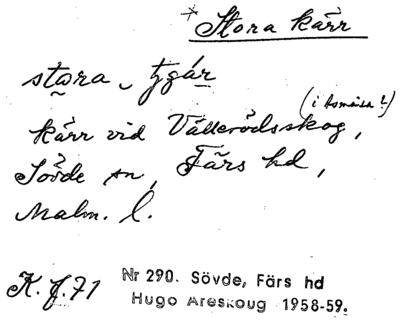 * Stora kärr
stora, tjgár
(i Asmåsa?)
kärr vid Vätterödsskog,
Sövde sn, Färs hd,
Malm. l.
K. J. 71
Nr 290. Sövde, Färs hd
Hugo Areskoug 1958-59.